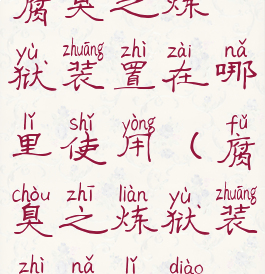 腐臭之炼
yù zhuāng zhì zài nǎ
狱装置在哪
lǐ shǐ yòng fǔ
里使用（腐
chòu zhī liàn yù zhuāng
臭之炼狱装
zhì nǎ lǐ diào